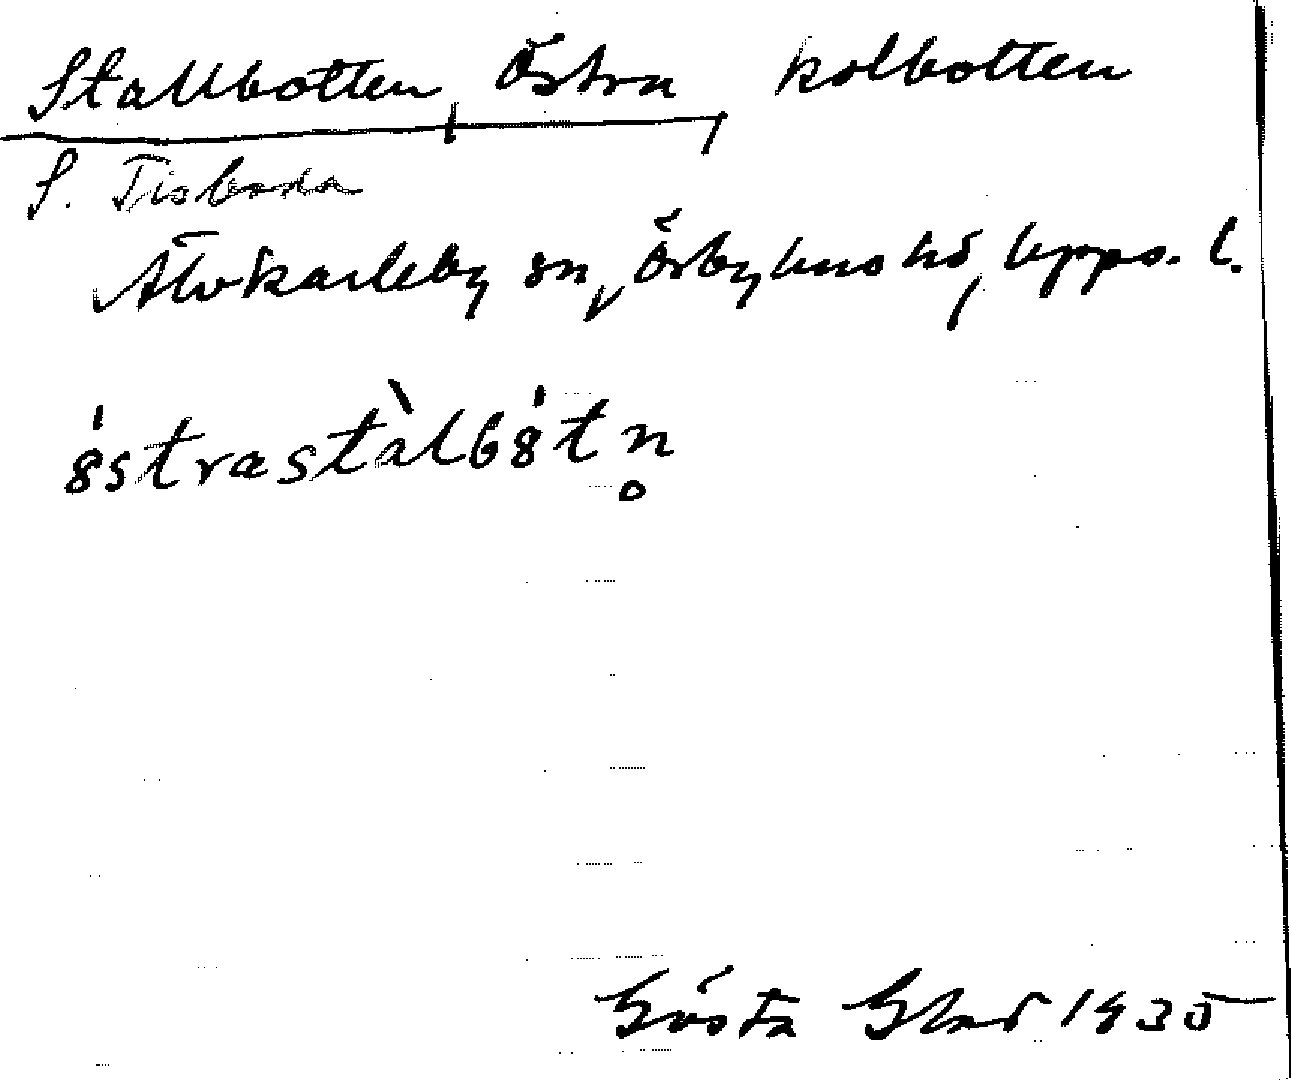 Stallbotten, Östra, kolbotten
S. Tisboda
Älvkarleby sn, Örbyhus hd, Upps. l.
östrastàlbötn̥
Gösta 1935